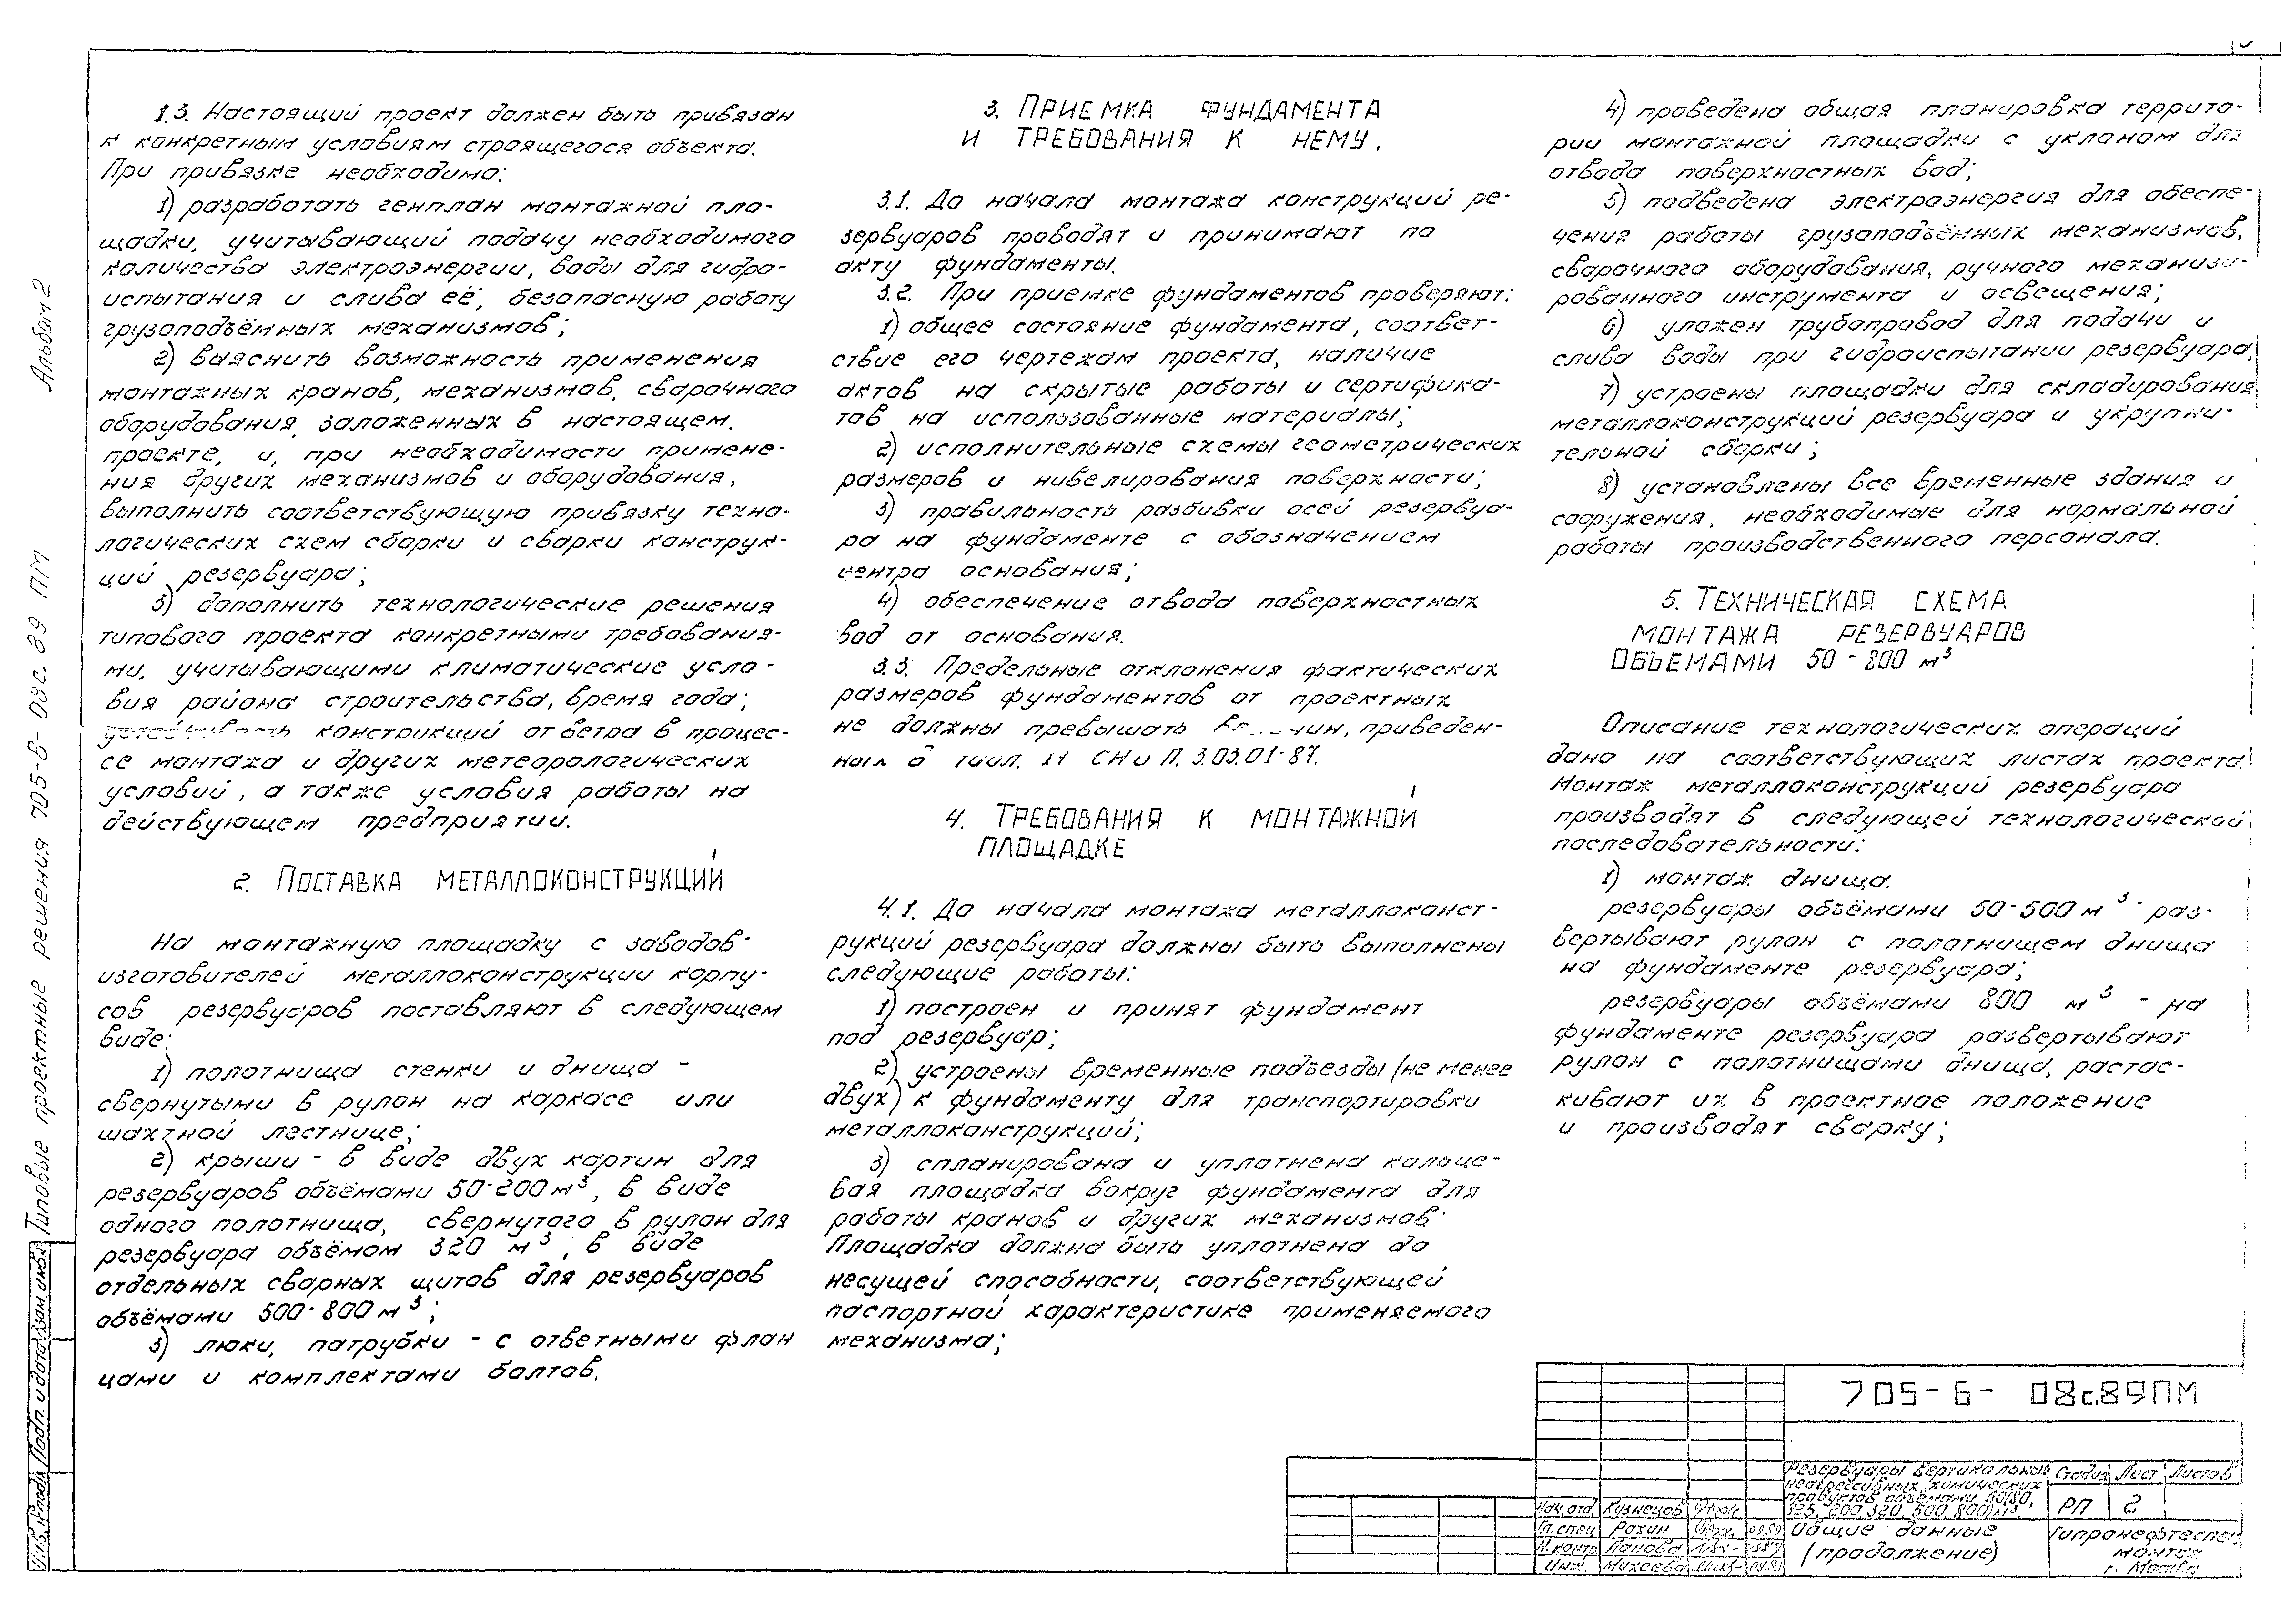 1.3. Настоящий проект должен быть привязан
к конкретным условиям строящегося объекта.
При привязке необходимо:
1) разработать генплан монтажной пло-
щадки, учитывающий подачу необходимого
количества электроэнергии, воды для гидро-
испытания и слива её, безопасную работу
грузоподъёмных механизмов;
2) выяснить возможность применения
монтажных кранов, механизмов, сварочного
оборудования, заложенных в настоящем
проекте, и, при необходимости примене-
ния других механизмов и оборудования,
выполнить соответствующую привязку техно-
логических схем сборки и сварки конструк-
ций резервуара;
3) дополнить технологические решения
типового проекта конкретными требования-
ми, учитывающими климатические усло-
вия района строительства, время года;
устойчивость конструкций от ветра в процес-
се монтажа и других метеорологических
условий, а также условия работы на
действующем предприятии.
2. ПОСТАВКА МЕТАЛЛОКОНСТРУКЦИЙ
На монтажную площадку с заводов-
изготовителей металлоконструкции корпу-
сов резервуаров поставляют в следующем
виде:
1) полотнища стенки и днища -
свернутыми в рулон на каркасе или
шахтной лестнице;
2) крыши - в виде двух картин для
резервуаров объёмами 50-200 м³, в виде
одного полотнища, свернутого в рулон для
резервуара объёмом 320 м³, в виде
отдельных сварных щитов для резервуаров
объёмами 500-800 м³;
3) люки, патрубки - с ответными флан
цами и комплектами болтов.
3. ПРИЕМКА ФУНДАМЕНТА
И ТРЕБОВАНИЯ К НЕМУ.
3.1. До начала монтажа конструкций ре-
зервуаров проводят и принимают по
акту фундаменты.
3.2. При приемке фундаментов проверяют:
1) общее состояние фундамента, соответ-
ствие его чертежам проекта, наличие
актов на скрытые работы и сертифика-
тов на использованные материалы;
2) исполнительные схемы геометрических
размеров и нивелирования поверхности;
3) правильность разбивки осей резервуа-
ра на фундаменте с обозначением
центра основания;
4) обеспечение отвода поверхностных
вод от основания.
3.3. Предельные отклонения фактических
размеров фундаментов от проектных
не должны превышать приведен-
ных в табл. СНиП. 3.03.01-87.
4. ТРЕБОВАНИЯ К МОНТАЖНОЙ
ПЛОЩАДКЕ
4.1. До начала монтажа металлоконст-
рукций резервуара должны быть выполнены
следующие работы:
1) построен и принят фундамент
под резервуар;
2) устроены временные подъезды (не менее
двух) к фундаменту для транспортировки
металлоконструкций;
3) спланирована и уплотнена кольце-
вая площадка вокруг фундамента для
работы кранов и других механизмов.
Площадка должна быть уплотнена до
несущей способности, соответствующей
паспортной характеристике применяемого
механизма;
4) проведена общая планировка террито-
рии монтажной площадки с уклоном для
отвода поверхностных вод;
5) подведена электроэнергия для обеспе-
чения работы грузоподъёмных механизмов,
сварочного оборудования, ручного механизи-
рованного инструмента и освещения;
6) уложен трубопровод для подачи и
слива воды при гидроиспытании резервуара;
7) устроены площадки для складирования
металлоконструкций резервуара и укрупни-
тельной сборки;
8) установлены все временные здания и
сооружения, необходимые для нормальной
работы производственного персонала.
5. ТЕХНИЧЕСКАЯ СХЕМА
МОНТАЖА РЕЗЕРВУАРОВ
ОБЪЕМАМИ 50-800 м³
Описание технологических операций
дано на соответствующих листах проекта.
Монтаж металлоконструкций резервуара
производят в следующей технологической
последовательности:
1) монтаж днища.
резервуары объёмами 50-500 м³ - раз-
вертывают рулон с полотнищем днища
на фундаменте резервуара;
резервуары объёмами 800 м³ - на
фундаменте резервуара развертывают
рулон с полотнищами днища, растас-
кивают их в проектное положение
и производят сварку;
Альбом 2
Типовые проектные решения 705-6-08с.89 ПМ
Инв. № подл. Подп. и дата Взам. инв. №
705-6- 08с.89ПМ
Резервуары вертикальные
неагрессивных химических
продуктов объёмами 50(80,
125, 200, 320, 500, 800) м³.
Стадия Лист Листов
РП 2
Нач. отд. Кузнецов
Гл. спец. Рохин 0989
Н. контр. Панова
Инж. Михеева
Общие данные
(продолжение)
Гипронефтеспец
монтаж
г. Москва